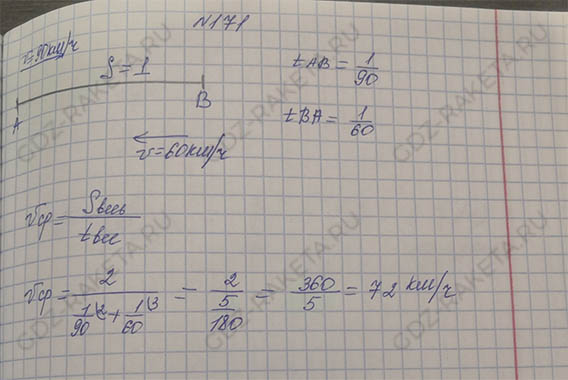 N171
v=90км/ч
S=1
A
B
v=60км/ч
tAB = 1/90
tBA = 1/60
vср = Sвесь/tвсе
vср = 2/(1/90\2 + 1/60\3) = 2/(5/180) = 360/5 = 72 км/ч
GDZ-RAKETA.RU
GDZ-RAKETA.RU
GDZ-RAKETA.RU
GDZ-RAKETA.RU
GDZ-RAKETA.RU
GDZ-RAKETA.RU